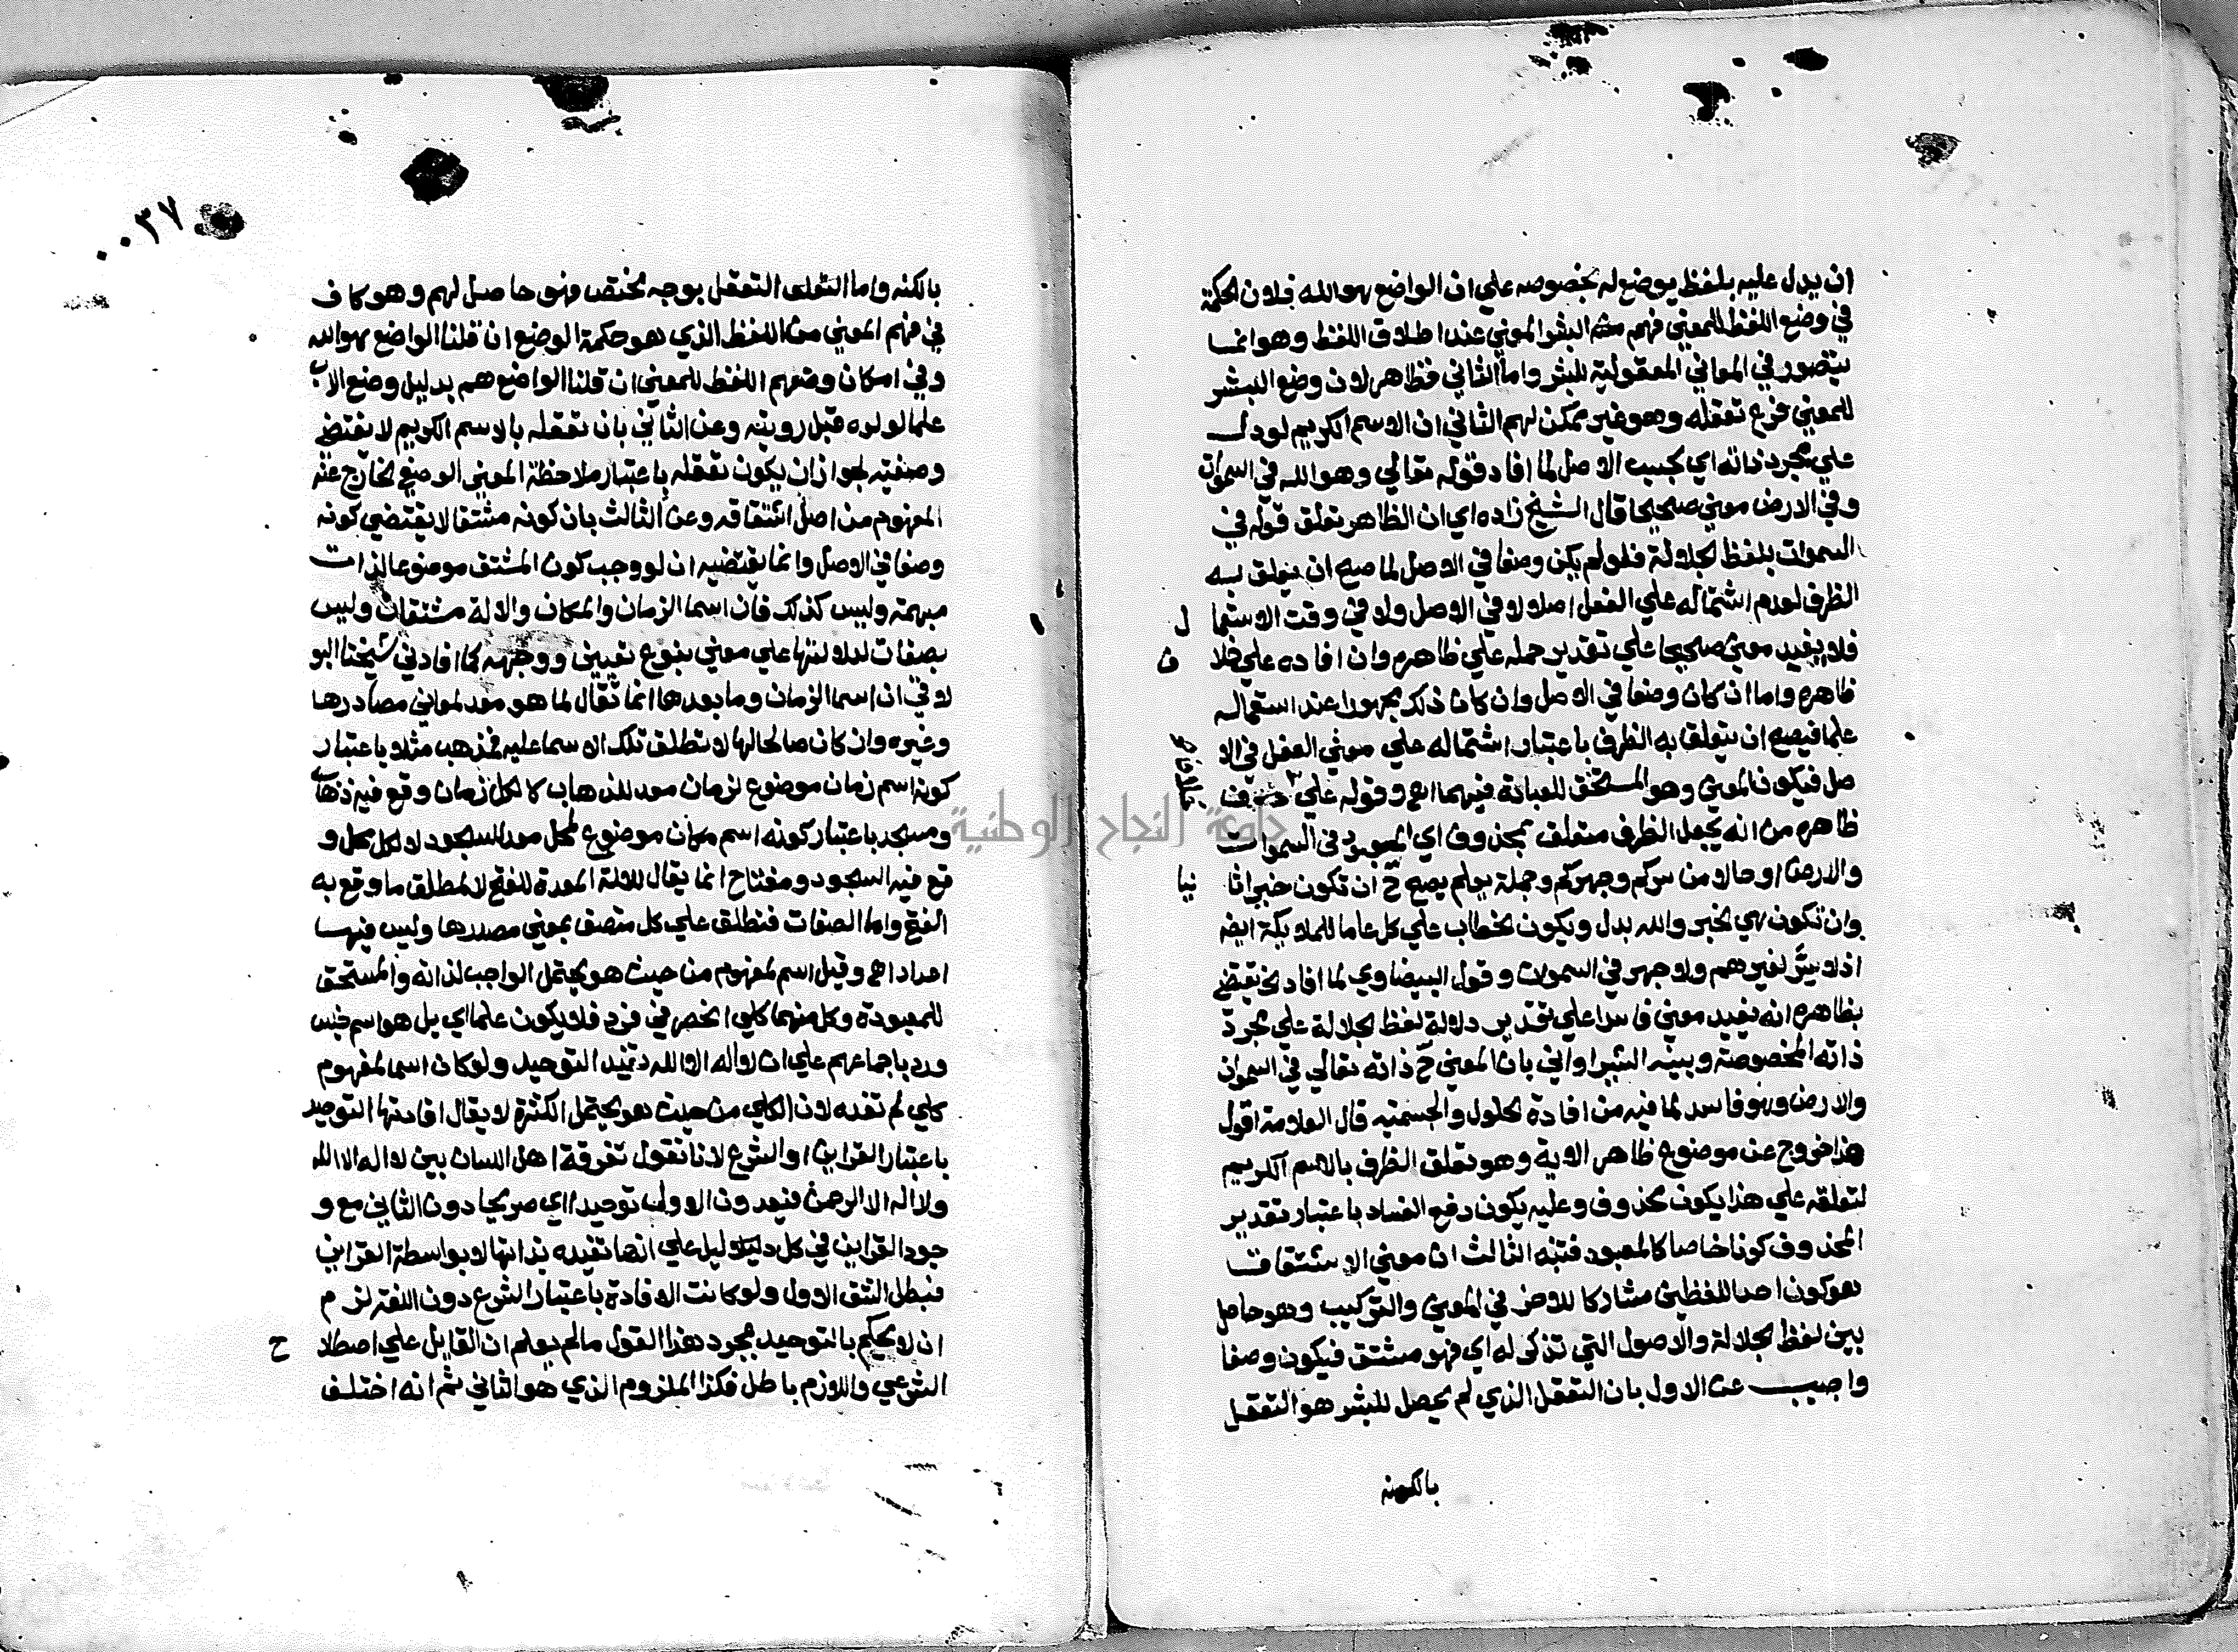 ان يدل عليه بلفظ يوضع له بخصوصه علي ان الواضع هو الله فلان الحكمة
في وضع اللفظ للمعني فهم البشر المعني عند اطلاق اللفظ وهو انما
يتصور في المعاني المعقولة للبشر واما الثاني فظاهر لان وضع البشر
للمعني فرع تعقله وهو غير ممكن لهم الثاني ان الاسم الكريم لو دل
علي مجرد ذاته اي بحسب الاصل لما افاد قوله تعالي وهو الله في السموات
وفي الارض معني صحيحا قال الشيخ زاده اي ان الظاهر تعلق قوله في
السموات بلفظ الجلالة فلو لم يكن وصفا في الاصل لما صح ان يتعلق به
الظرف لعدم اشتماله علي الفعل اصلا لا في الاصل ولا في وقت الاستعما ل
فلا يفيد معني صحيحا علي تقدير حمله علي ظاهره وان افاده علي خلا ف
ظاهره واما ان كان وصفا في الاصل وان كان ذلك مهجورا عند استعماله
علما فيصح ان يتعلق به الظرف باعتبار اشتماله علي معني الفعل في الا
صل فيكون المعني وهو المستحق للعبادة فيهما اه وقوله علي
ظاهره من انه يجعل الظرف متعلق بمحذوف اي المعبود في السموات
والارض او حالا من سركم وجهركم وجملة يعلم يصح ح ان تكون خبرا ثا نيا
وان تكون هي الخبر والله بدل ويكون الخطاب علي كل عاما للملايكة ايضا
اذ لا سر لغيرهم ولا جهر في السموات وقول البيضاوي لما افاد الخ يقتضي
بظاهره انه يفيد معني فاسدا علي تقدير دلالة لفظ الجلالة علي مجرد
ذاته المخصوصة وبينه الشبراوي بان المعني ح ذاته تعالي في السموات
والارض وهو فاسد لما فيه من افادة الحلول والجسمية قال العلامة اقول
هذا خروج عن موضوع ظاهر الاية وهو تعلق الظرف بالاسم الكريم
لتعلقه علي هذا يكون بمحذوف وعليه يكون دفع الفساد باعتبار تقدير
المحذوف كونا خاصا كالمعبود فتنبه الثالث ان معني الاشتقاق
هو كون احد اللفظين مشاركا للاخر في المعني والتركيب وهو حاصل
بين لفظ الجلالة والاصول التي تذكر له اي فهو مشتق فيكون وصفا
واجيب عن الاول بان التعقل الذي لم يحصل للبشر هو التعقل
بالكنه
٠٠٣٧
بالكنه واما التعقل بوجه مختص فهو حاصل لهم وهو كاف
في فهم المعني من اللفظ الذي هو حكمة الوضع ان قلنا الواضع هو الله
وفي امكان وضعهم اللفظ للمعني ان قلنا الواضع هم بدليل وضع الاب
علما لولده قبل رويته وعن الثاني بان تعقله بالاسم الكريم لا يقتضي
وصفيته لجواز ان يكون تعقله باعتبار ملاحظة المعني الوضعي الخارج عنه
المفهوم من اصل اشتقاقه وعن الثالث بان كونه مشتقا لا يقتضي كونه
وصفا في الاصل وانما يقتضيه ان لو وجب كون المشتق موضوعا لذات
مبهمة وليس كذلك فان اسما الزمان والمكان والالة مشتقات وليس
بصفات لدلالتها علي معني بنوع تعيين ووجهه كما افادني شيخنا البو
لاقي ان اسما الزمان وما بعدها انما تقال لما هو معد لمعاني مصادرها
وغيره وان كان صالحا لها لا تطلق تلك الاسما عليه فمذهب مثلا باعتبار
كونه اسم زمان موضوع لزمان معد للذهاب لا لكل زمان وقع فيه ذهاب
ومسجد باعتبار كونه اسم مكان موضوع لمحل معد للسجود لا لكل محل و
قع فيه السجود ومفتاح انما يقال للالة المعدة للفتح لا لمطلق ما وقع به
الفتح واما الصفات فتطلق علي كل متصف بمعني مصدرها وليس فيها
اعداد اه وقيل اسم لمفهوم من حيث هو يحتمل الواجب لذاته والمستحق
للمعبودة وكل منهما كلي انحصر في فرد فلا يكون علما اي بل هو اسم جنس
ورد باجماعهم علي ان لا اله الا الله تفيد التوحيد ولو كان اسما لمفهوم
كلي لم تفده لان الكلي من حيث هو يحتمل الكثرة لا يقال افادتها التوحيد
باعتبار القراين او الشرع لانا نقول تفرقة اهل اللسان بين لا اله الا الله
ولا اله الا الرحمن فيعدون الاول توحيدا اي صريحا دون الثاني مع و
جود القراين في كل دليل علي انها تفيده بذاتها لا بواسطة القراين
فبطل الشق الاول ولو كانت الافادة باعتبار الشرع دون اللغة لزم
ان لا يحكم بالتوحيد بمجرد هذا القول ما لم يعلم ان القايل علي اصطلا ح
الشرعي واللازم باطل فكذا الملزوم الذي هو الثاني ثم انه اختلف
جامعة النجاح الوطنية